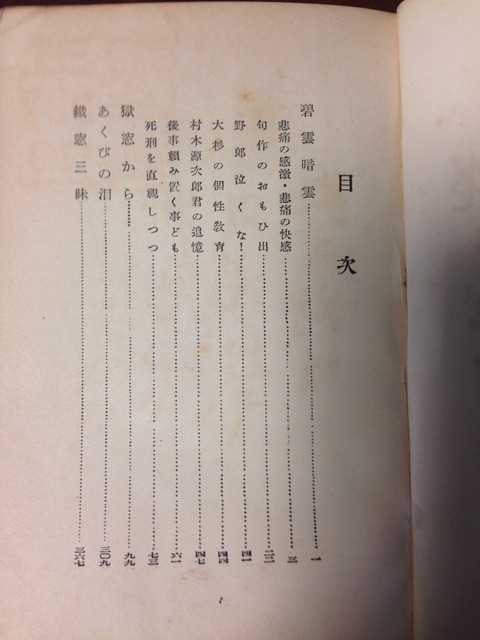 目次
碧雲暗雲 一
悲痛の感激・悲痛の快感 三
句作のおもひ出
野郎泣くな! 四一
大杉の個性敎育 四四
村木源次郎君の追憶 四七
後事賴み置く事ども 六一
死刑を直視しつつ 七三
獄窓から 九九
あくびの泪 三〇九
鐵窓三昧 三六七
1